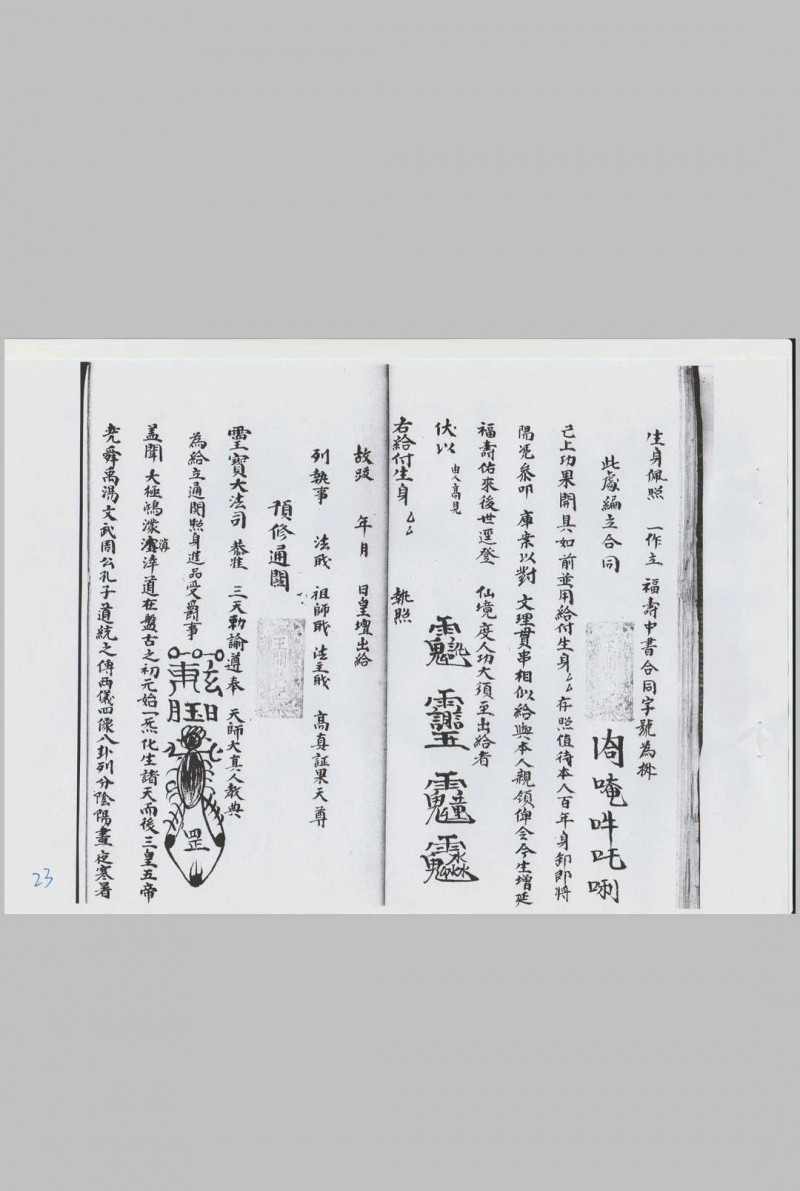 生身佩照　一作立　福壽中書合同字號為㭲
此處編立合同
唵吽吒唎
己上功果開具如前並用給付生身厶厶存照值待本人百年身卸即將
陽凭叅叩　庫案以對　文理貫串相似給與本人親領俾令今生增延
福壽佑來後世逕登　仙境度人功大須至出給者
伏以　由人高見
右給付生身厶厶　執照
故㱔　年月　日皇壇出給
列執事　法戝　祖師戝　法主戝　高真証果天尊
預修通關
靈寶大法司　恭准　三天勅諭遵奉　天師大真人教典
為給立通関照身進品受爵事
罡
盖聞　大極鴻濛滓道在盤古之初元始一炁化生諸天而後三皇五帝
堯舜禹湯文武周公孔子道統之傳兩儀四像八卦列分陰陽晝夜寒暑
23